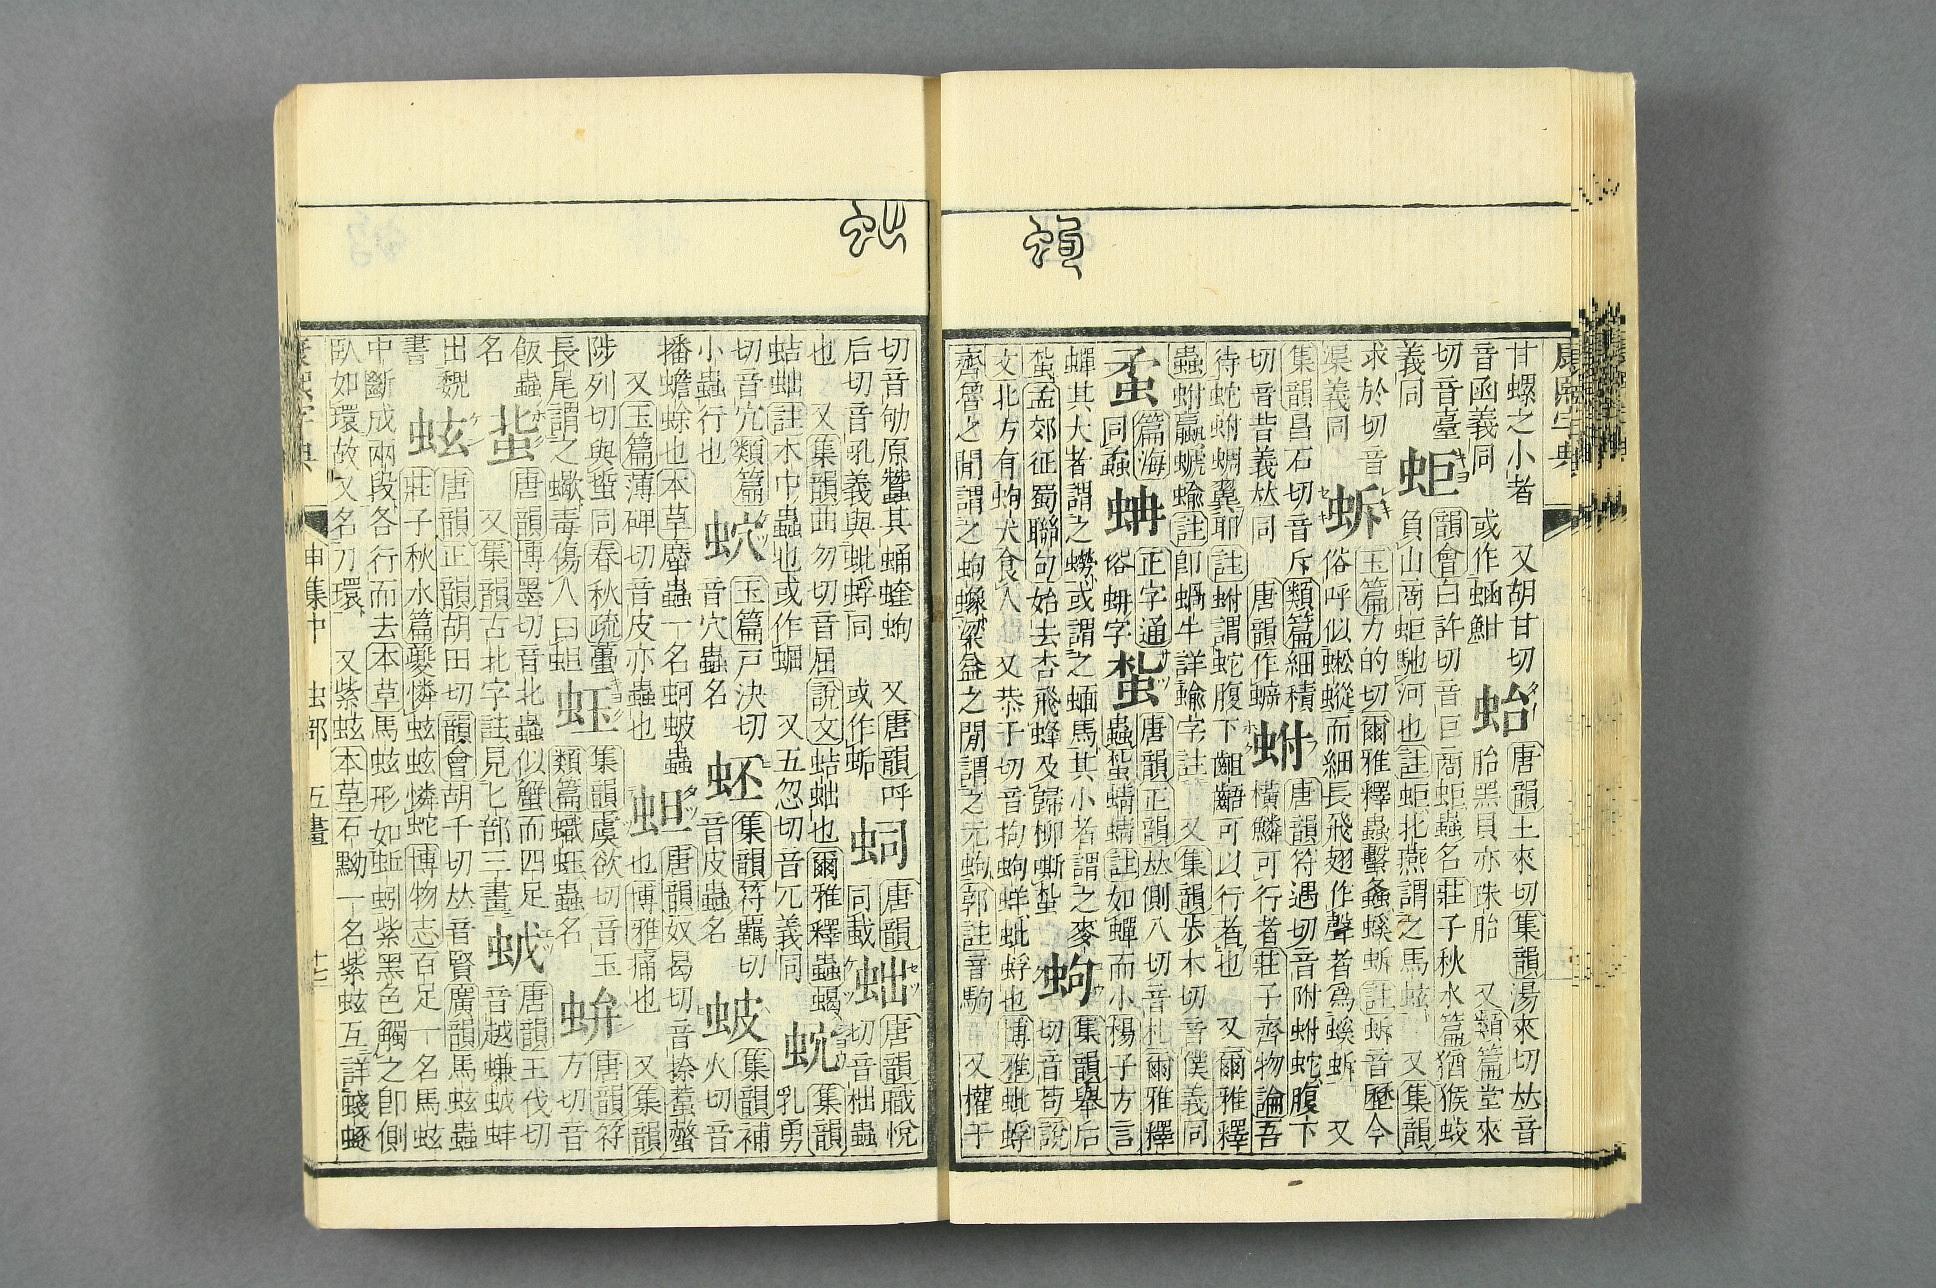 康熙字典
甘螺之小者 又胡甘切音函義同 或作蜬魽
蛤
唐韻土來切集韻湯來切𠀤音胎黑貝亦珠胎 又類篇堂來切音臺義同
蚷
韻會臼許切音巨商蚷蟲名莊子秋水篇猶猴蛟負山商蚷馳河也註蚷北燕謂之馬蚿 又集韻求於切音渠義同
蚸
玉篇力的切爾雅釋蟲蟿螽螇蚸註蚸音歷今俗呼似蜙蝑而細長飛翅作聲者爲螇蚸 又集韻昌石切音斥類篇細積切音昔義𠀤同 唐韻作蠣
蚹
唐韻符遇切音附蚹蛇腹下橫鱗可行者莊子齊物論吾待蛇蚹蜩翼耶註蚹謂蛇腹下齟齬可以行者也 又爾雅釋蟲蚹蠃螔蝓註卽蝸牛詳蝓字註 又集韻步木切音僕義同
蝥
篇海同蟊
蚺
正字通俗蚦字
蚻
唐韻正韻𠀤側八切音札爾雅釋蟲蚻蜻蜻註如蟬而小揚子方言蟬其大者謂之蟧或謂之蝒馬其小者謂之麥蚻孟郊征蜀聯句始去杏飛蜂及歸柳嘶蚻
蚼
集韻舉后切音苟說文北方有蚼犬食人 又恭于切音拘蚼蛘蚍蜉也博雅蚍蜉齊魯之閒謂之蚼蟓梁益之閒謂之元蚼郭註音駒 又權于
蝜
蚰
切音劬原蠶其蛹蝰蚼 又唐韻呼后切音吼義與蚍蜉同 或作蚷
蚵
唐韻同蛓
蚰
唐韻職悅切音梲蟲也 又集韻曲勿切音屈說文蛣蚰也爾雅釋蟲蝎蛣蚰註木中蟲也或作蝠 又五忽切音兀義同
蚘
集韻乳勇切音宂類篇小蟲行也
蚗
玉篇戸決切音穴蟲名
蚽
集韻符羈切音皮蟲名
蚾
集韻補火切音播蟾蜍也本草䗪蟲一名蚵蚾蟲 又玉篇薄碑切音皮亦蟲也
蚎
唐韻奴曷切音捺螫蠚也博雅痛也 又集韻陟列切與蜇同春秋疏蠆長尾謂之蠍毒傷人曰蛆
蚟
集韻虞欲切音玉類篇蠘蚟蟲名
蛢
唐韻符方切音飯蟲名
蜚
唐韻博墨切音北蟲似蟹而四足 又集韻古北字註見匕部三畫
蚎
唐韻王伐切音越蠊蛂蚌出魏書
蚿
唐韻正韻胡田切韻會胡千切𠀤音賢廣韻馬蚿蟲莊子秋水篇夔憐蚿蚿憐蛇博物志百足一名馬蚿中斷成兩段各行而去本草馬蚿形如蚯蚓紫黑色觸之卽側臥如環故又名刀環 又紫蚿本草石黝一名紫蚿互詳蝬𧌒
康熙字典 申集中 虫部 五畫 十七